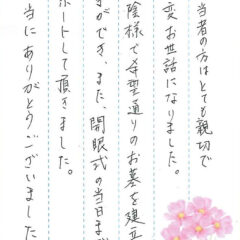 当者の方はとても親切で
変お世話になりました。
陰様で希望通りのお墓を建立
ができ、また、開眼式の当日ま
ポートして頂きました。
当にありがとうございました